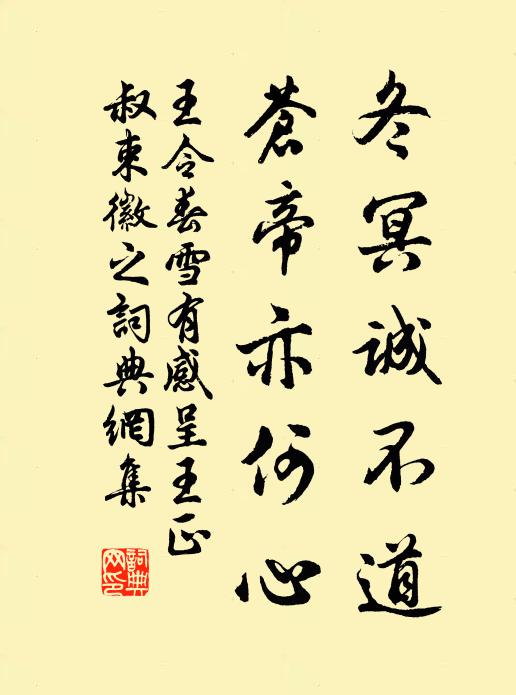 冬冥誠不道
蒼帝亦何心
王令春雪有感呈王正
叔束徽之詞典網集
詞典網印